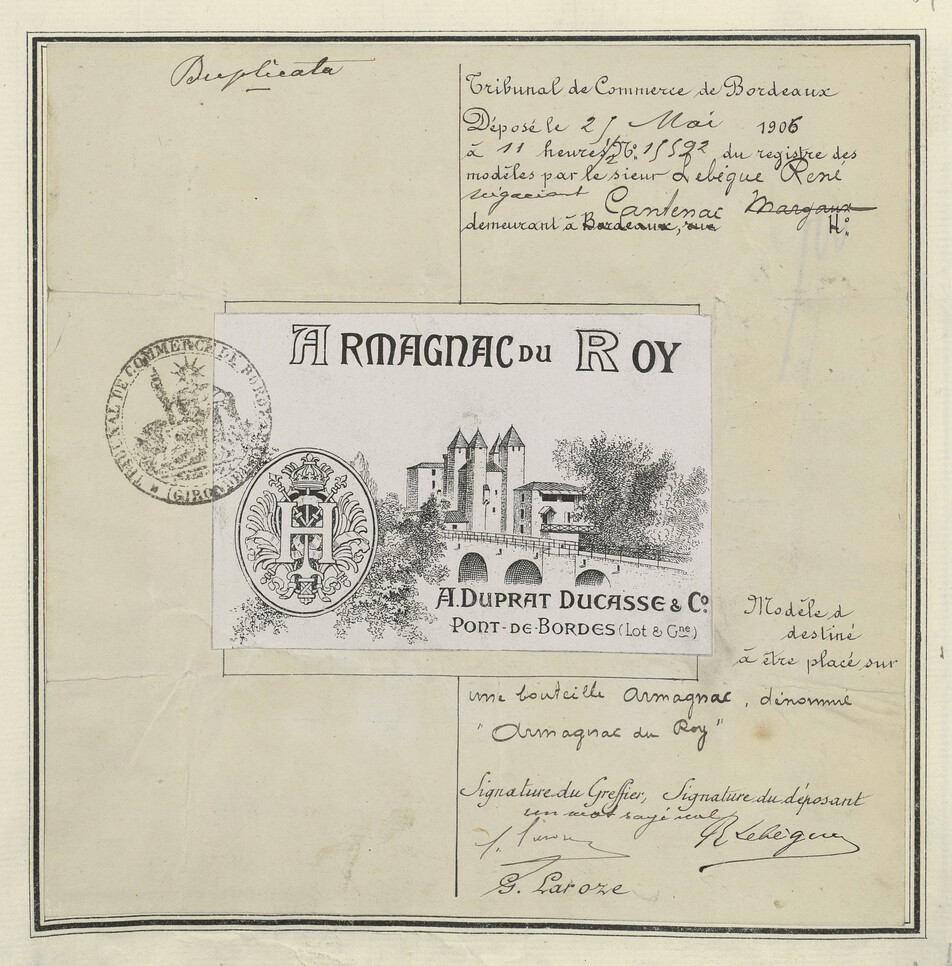 Duplicata
Tribunal de Commerce de Bordeaux
Déposé le 25 Mai 1906
à 11 heures ½ No. 15592 du registre des
modèles par le sieur Lebègue René
négociant Cantenac Margaux
demeurant à Bordeaux, rue Ho.
TRIBUNAL DE COMMERCE DE BORDEAUX
(GIRONDE)
ARMAGNAC DU ROY
H
A. DUPRAT DUCASSE & Co.
PONT-DE-BORDES (Lot & Gne)
Modèle d
destiné
à être placé sur
une bouteille Armagnac, dénommé
"Armagnac du Roy"
Signature du Greffier, Signature du déposant
un mot rayé nul
R Lebègue
G. Laroze